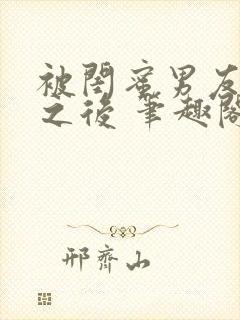 被閨蜜男友
之後 筆趣閣
邢齊山